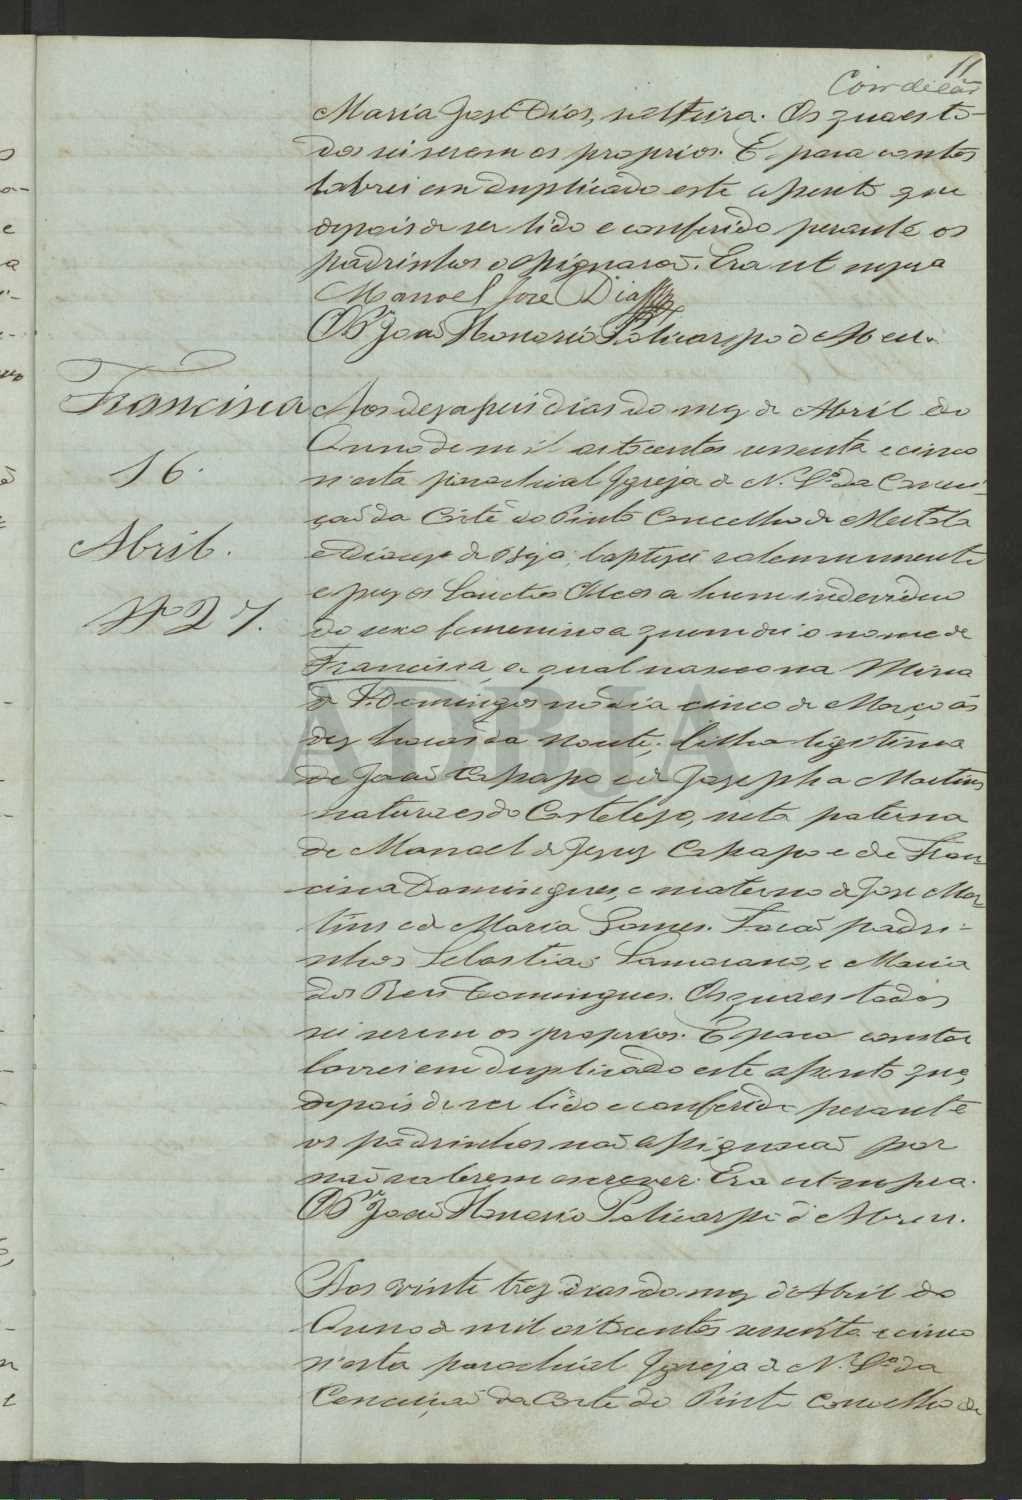 11
Maria José Dias, solteira. Os quaes to-
dos sei serem os proprios. E para constar
lavrei em duplicado este assento que
depois de ser lido e conferido perante os
padrinhos o assignaraõ. Era ut supra
Manoel Jose Dias
O Pr. Joaõ Honorio Policarpo d'Abreu.
Francisca
16.
Abril.
Nº 27.
Aos dezasseis dias do mez de Abril do
Anno de mil oitocentos sessenta e cinco
n'esta parochial Igreja de N. Sra. da Concei-
çaõ da Côrte do Pinto Concelho de Mertola
e Diocese de Beja, baptizei solemnemente
e puz os Sanctos Oleos a hum individuo
do sexo femenino a quem dei o nome de
Francisca, a qual nasceo na Mina
de S. Domingos no dia cinco de Março ás
dez horas da noute, filha legitima
de Joaõ Chapo e de Josepha Martins
naturaes do Castelejo, neta paterna
de Manoel de Jezuz e de Fran-
cisca Domingues, e materna de Jose Mar-
tins e de Maria Gomes. Foraõ padri-
nhos Sebastiaõ Samorano, e Maria
dos Reis Domingues. Os quaes todos
sei serem os proprios. E para constar
lavrei em duplicado este assento que,
depois de ser lido e conferido perante
os padrinhos naõ assignaraõ por
naõ saberem escrever. Era ut supra.
O Pr. Joaõ Honorio Policarpo d'Abreu.
Aos vinte trez dias do mez d'Abril do
Anno de mil oitocentos sessenta e cinco
n'esta parochial Igreja de N. Sra. da
Conceiçaõ da Corte do Pinto Concelho de
ADBJA